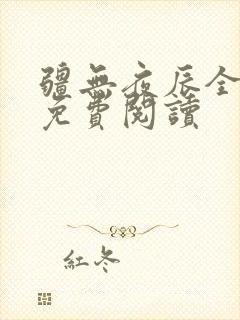 疆無夜辰全
免費閱讀
紅冬